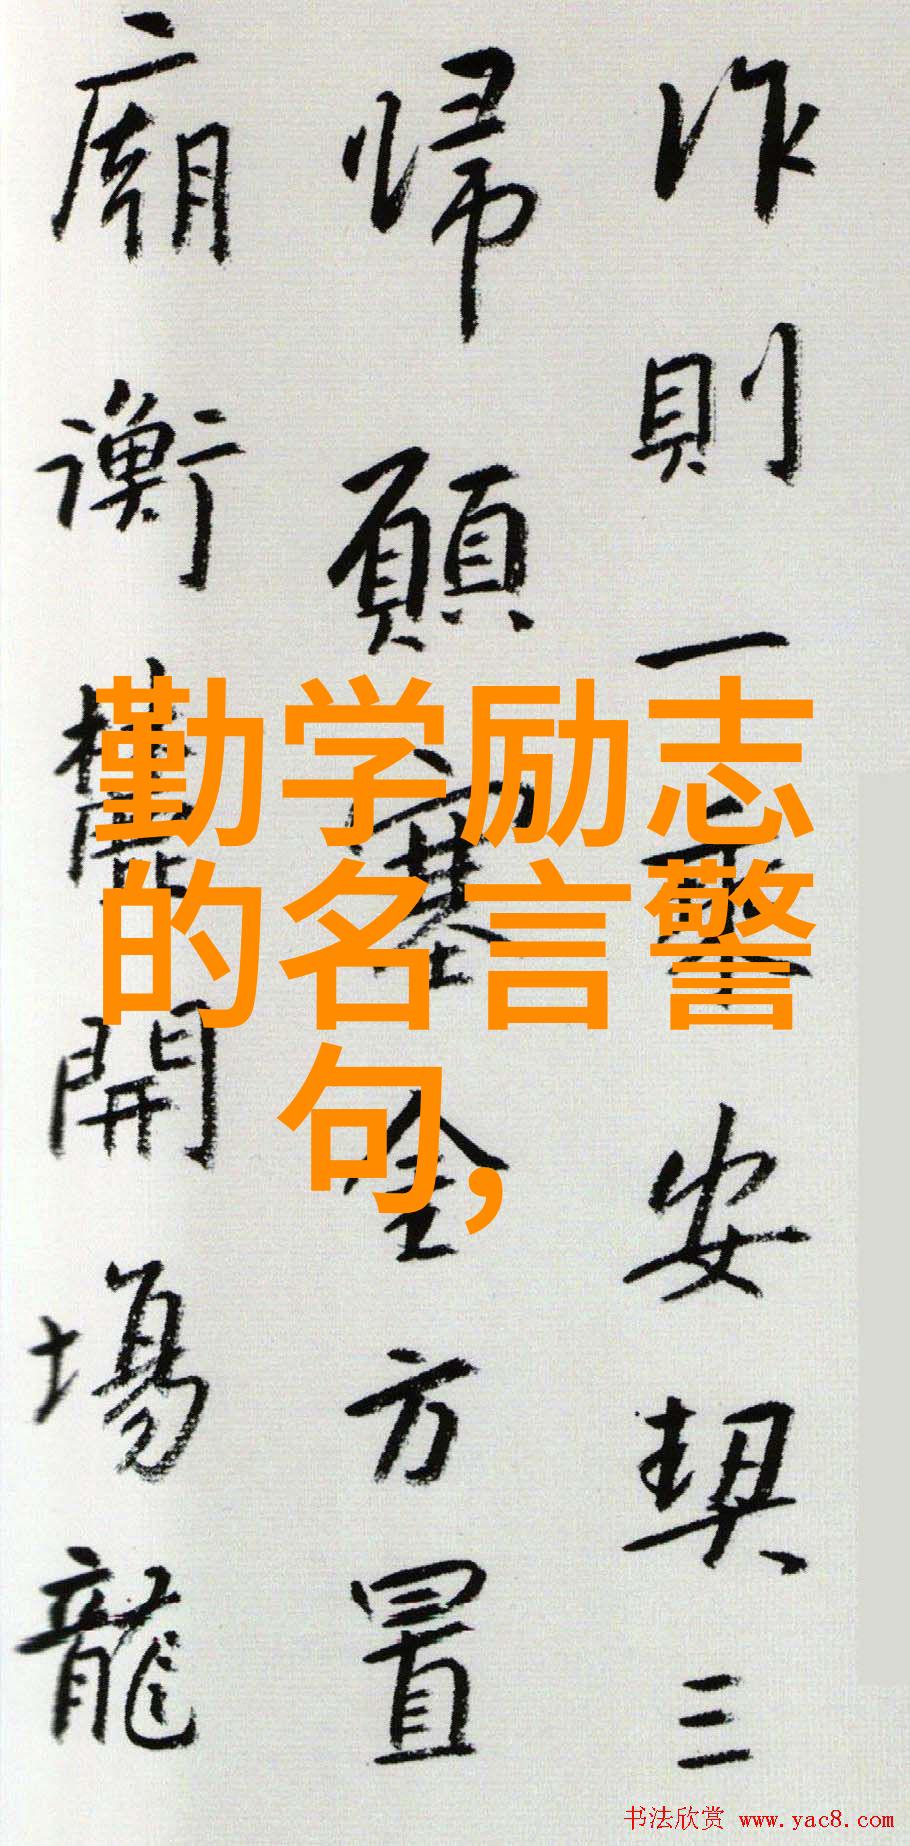 作則一乘安契三
歸願塞全方置
廟衡麓開場龍
勤学励志警
的名言警
句,
书法欣赏 www.yac8.com